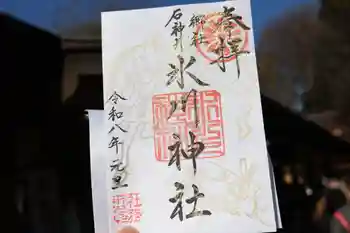 奉拝
石神井 郷社
氷川神社
令和八年元旦